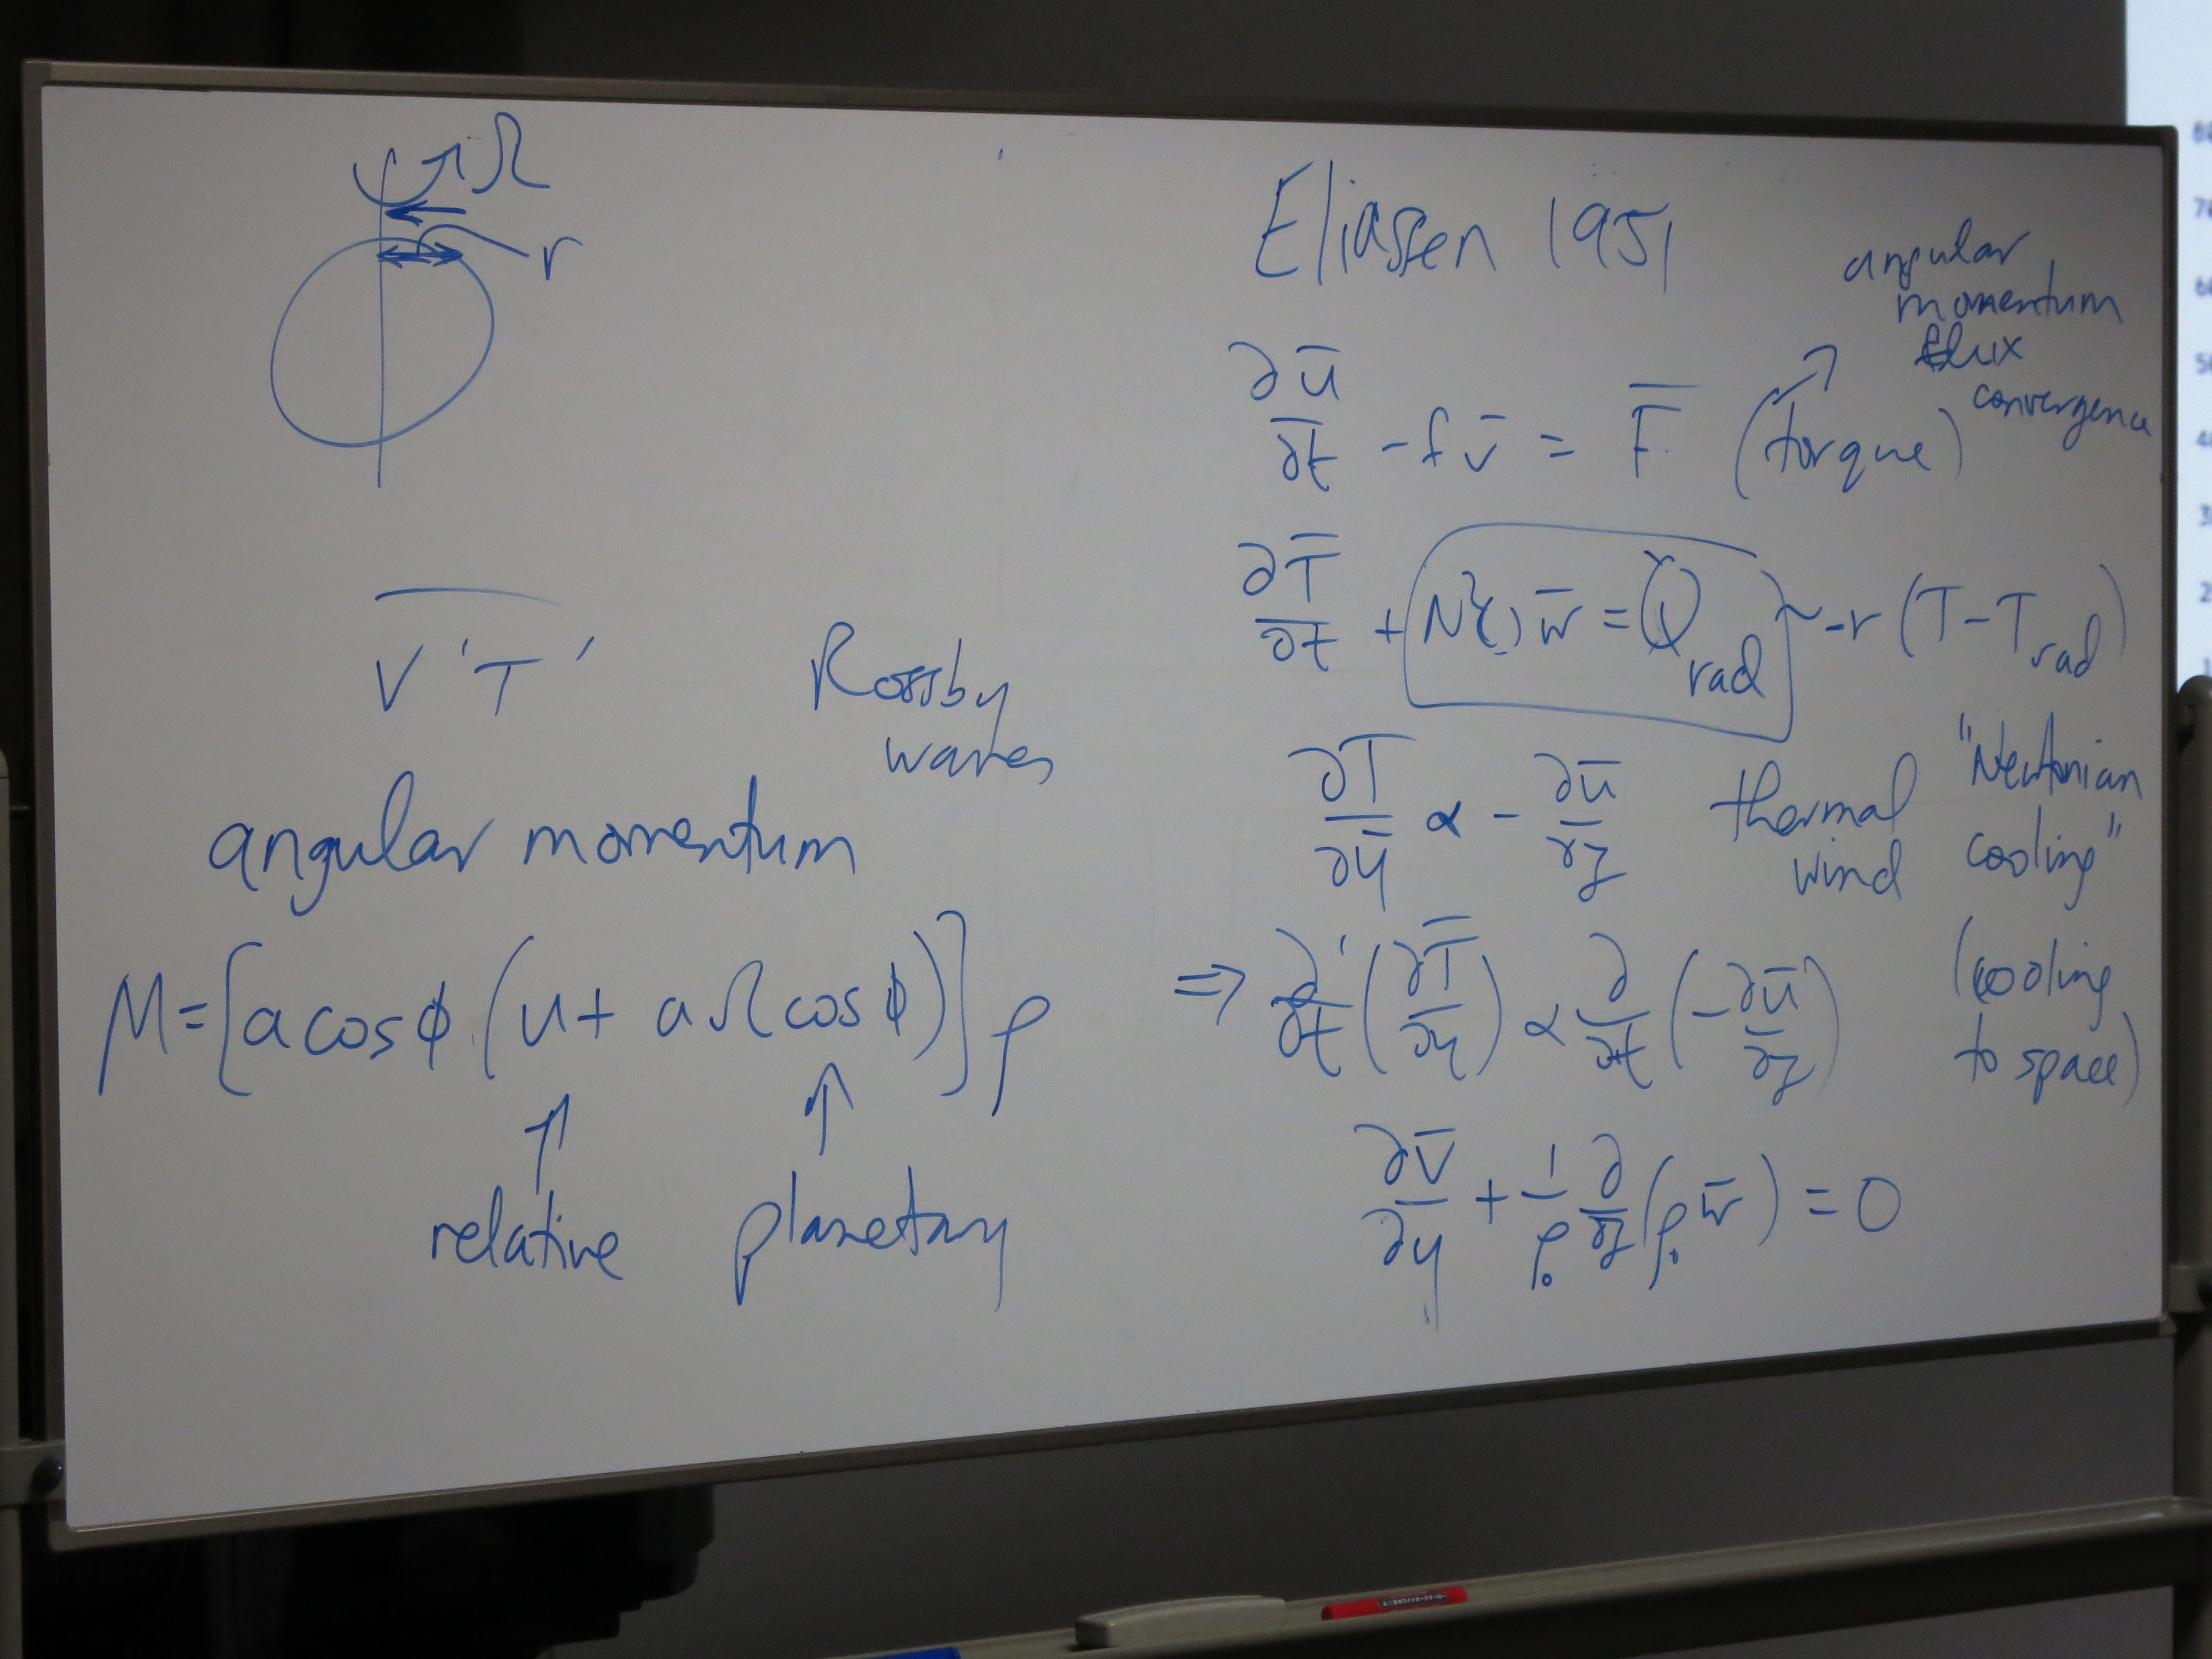 Ω
r
V'T'
Rossby
waves
angular momentum
M = [a cos ϕ (u + a Ω cos ϕ)] ρ
relative planetary
Eliassen 1951
angular
momentum
flux
convergence
∂ū/∂t - f v̄ = F̄ (torque)
∂T̄/∂t + N²() w̄ = Q̄ rad ~ -r (T - T rad)
"Newtonian
cooling"
(cooling
to space)
∂T̄/∂y ∝ - ∂ū/∂z thermal
wind
⇒ ∂/∂t (∂T̄/∂y) ∝ ∂/∂t (-∂ū/∂z)
∂v̄/∂y + 1/ρ₀ ∂/∂z (ρ₀ w̄) = 0